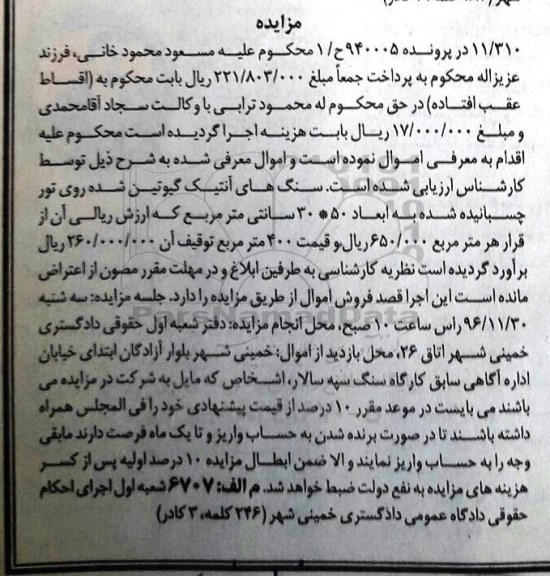 مزایده
۱۱/۳۱۰ در پرونده ۹۴۰۰۰۵ح/۱ محکوم علیه مسعود محمود خانی، فرزند
عزیزاله محکوم به پرداخت جمعاً مبلغ ۲۲۱/۸۰۳/۰۰۰ ریال بابت محکوم به (اقساط
عقب افتاده) در حق محکوم له محمود ترابی با وکالت سجاد آقامحمدی
و مبلغ ۱۷/۰۰۰/۰۰۰ ریال بابت هزینه اجرا گردیده است محکوم علیه
اقدام به معرفی اموال نموده است و اموال معرفی شده به شرح ذیل توسط
کارشناس ارزیابی شده است. سنگ های آنتیک گیوتین شده روی تور
چسبانیده شده به ابعاد ۵۰*۳۰ سانتی متر مربع که ارزش ریالی آن از
قرار هر متر مربع ۶۵۰/۰۰۰ ریال و قیمت ۴۰۰ متر مربع توقیف آن ۲۶۰/۰۰۰/۰۰۰ ریال
برآورد گردیده است نظریه کارشناسی به طرفین ابلاغ و در مهلت مقرر مصون از اعتراض
مانده است این اجرا قصد فروش اموال از طریق مزایده را دارد. جلسه مزایده: سه شنبه
۹۶/۱۱/۳۰ راس ساعت ۱۰ صبح، محل انجام مزایده: دفتر شعبه اول حقوقی دادگستری
خمینی شهر اتاق ۲۶، محل بازدید از اموال: خمینی شهر بلوار آزادگان ابتدای خیابان
اداره آگاهی سابق کارگاه سنگ سپه سالار، اشخاص که مایل به شرکت در مزایده می
باشند می بایست در موعد مقرر ۱۰ درصد از قیمت پیشنهادی خود را فی المجلس همراه
داشته باشند تا در صورت برنده شدن به حساب واریز و تا یک ماه فرصت دارند مابقی
وجه را به حساب واریز نمایند و الا ضمن ابطال مزایده ۱۰ درصد اولیه پس از کسر
هزینه های مزایده به نفع دولت ضبط خواهد شد. م الف: ۶۷۰۷ شعبه اول اجرای احکام
حقوقی دادگاه عمومی دادگستری خمینی شهر (۲۴۶ کلمه، ۳ کادر)
ParsNamadData